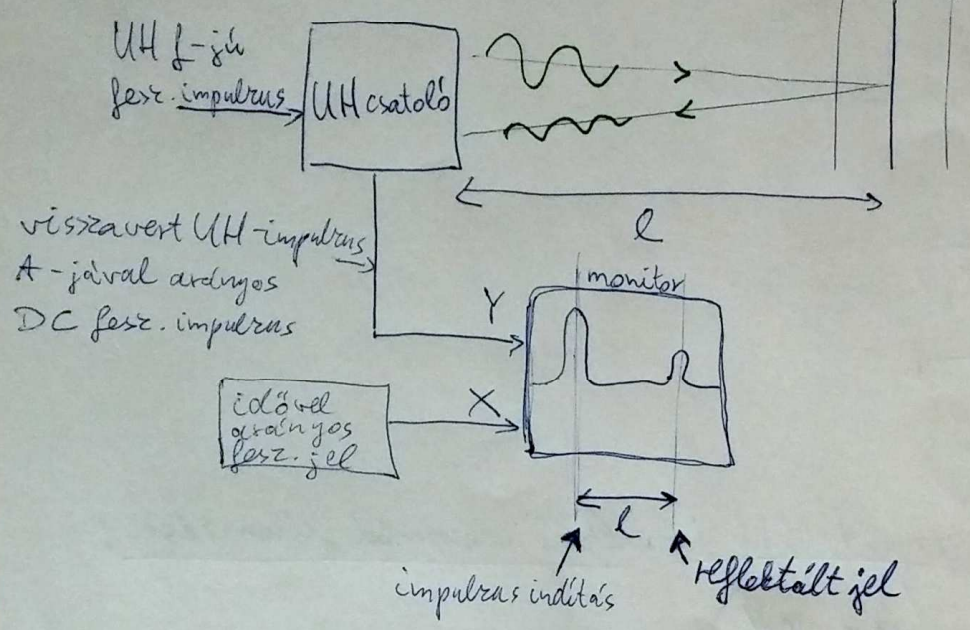 UH f-jú
fesz. impulzus
UH csatoló
l
visszavert UH-impulzus
A-jával arányos
DC fesz. impulzus
monitor
Y
X
idővel
arányos
fesz. jel
l
impulzus indítás
reflektált jel